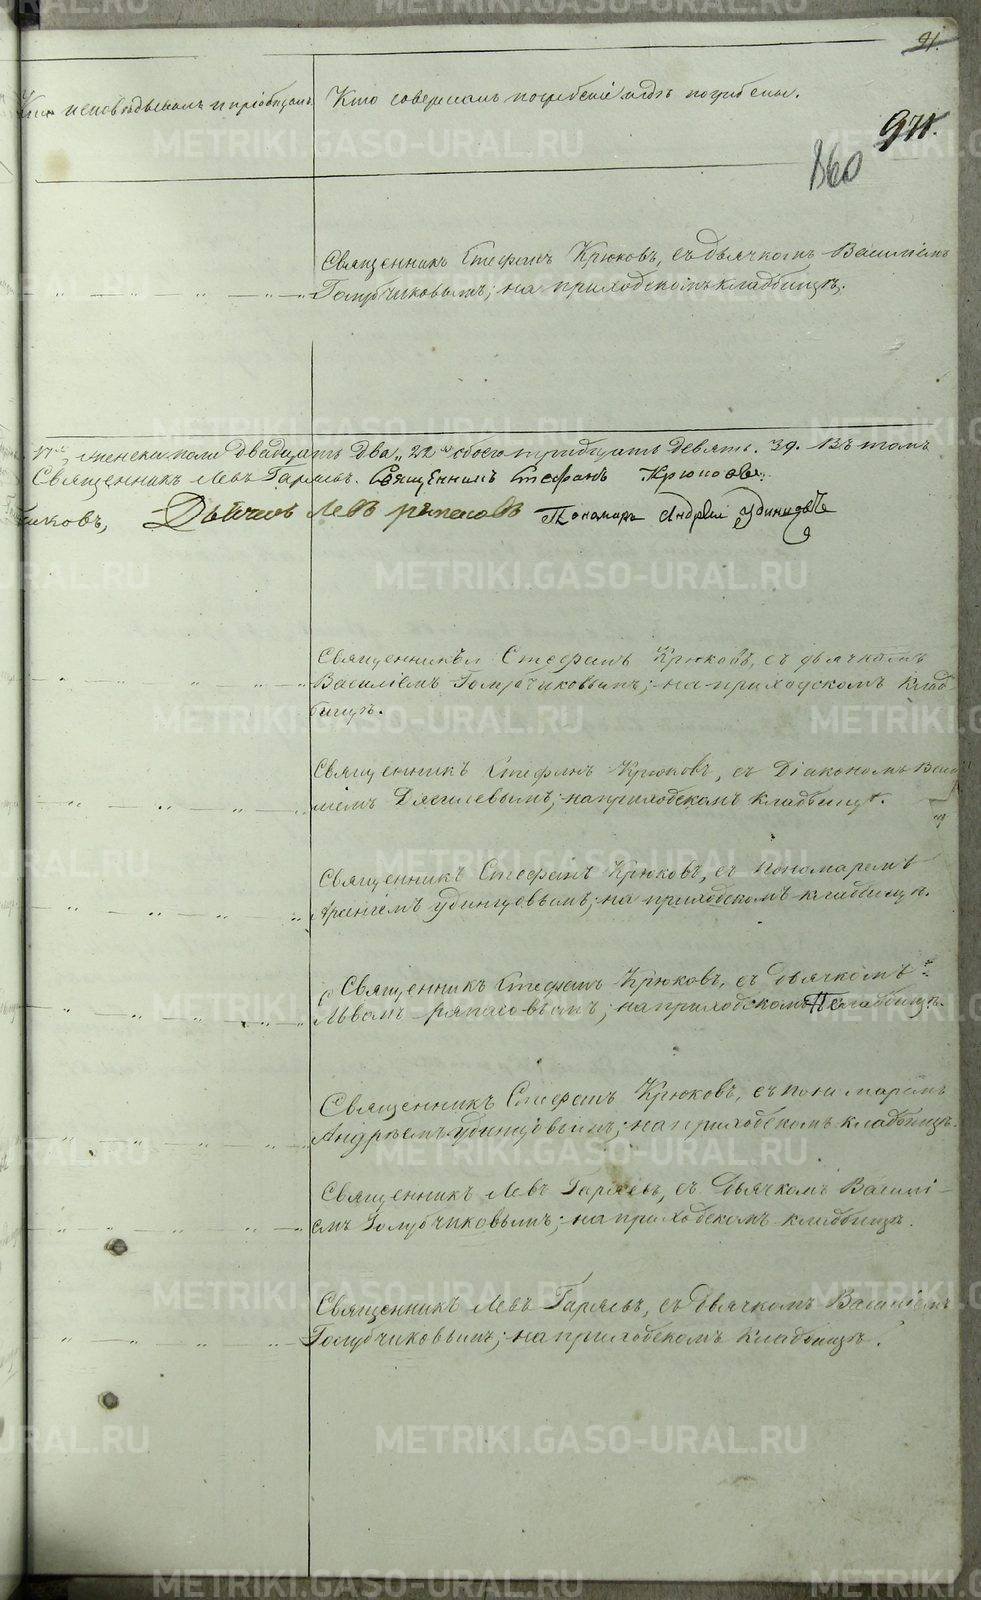 91.
Кто исповѣдывалъ и пріобщалъ.
Кто совершалъ погребеніе и гдѣ погребены.
971.
860
Священникъ Стефанъ Крюковъ, съ дьячкомъ Василіемъ
Голубчиковымъ; на приходскомъ кладбищѣ.
женска пола двадцать два „22" обоего тридцать девять. 39. Въ томъ
Священникъ Левъ Гаряевъ. Священникъ Стефанъ Крюковъ.
чиковъ, Дьячекъ Левъ Ряпасовъ Пономарь Андрей Удинцовъ
Священникъ Стефанъ Крюковъ, съ дьячкомъ
Василіемъ Голубчиковымъ; на приходскомъ клад-
бищѣ.
Священникъ Стефанъ Крюковъ, съ Діакономъ Васи
ліемъ Дягилевымъ; на приходскомъ кладбищѣ.
Священникъ Стефанъ Крюковъ, съ пономаремъ
Удинцовымъ; на приходскомъ кладбищѣ.
Священникъ Стефанъ Крюковъ, съ дьячкомъ
Львомъ Ряпасовымъ; на приходскомъ кладбищѣ.
Священникъ Стефанъ Крюковъ, съ пономаремъ
Андреемъ Удинцовымъ; на приходскомъ кладбищѣ.
Священникъ Левъ Гаряевъ, съ дьячкомъ Василі-
емъ Голубчиковымъ; на приходскомъ кладбищѣ.
Священникъ Левъ Гаряевъ, съ дьячкомъ Василіемъ
Голубчиковымъ; на приходскомъ кладбищѣ.
METRIKI.GASO-URAL.RU